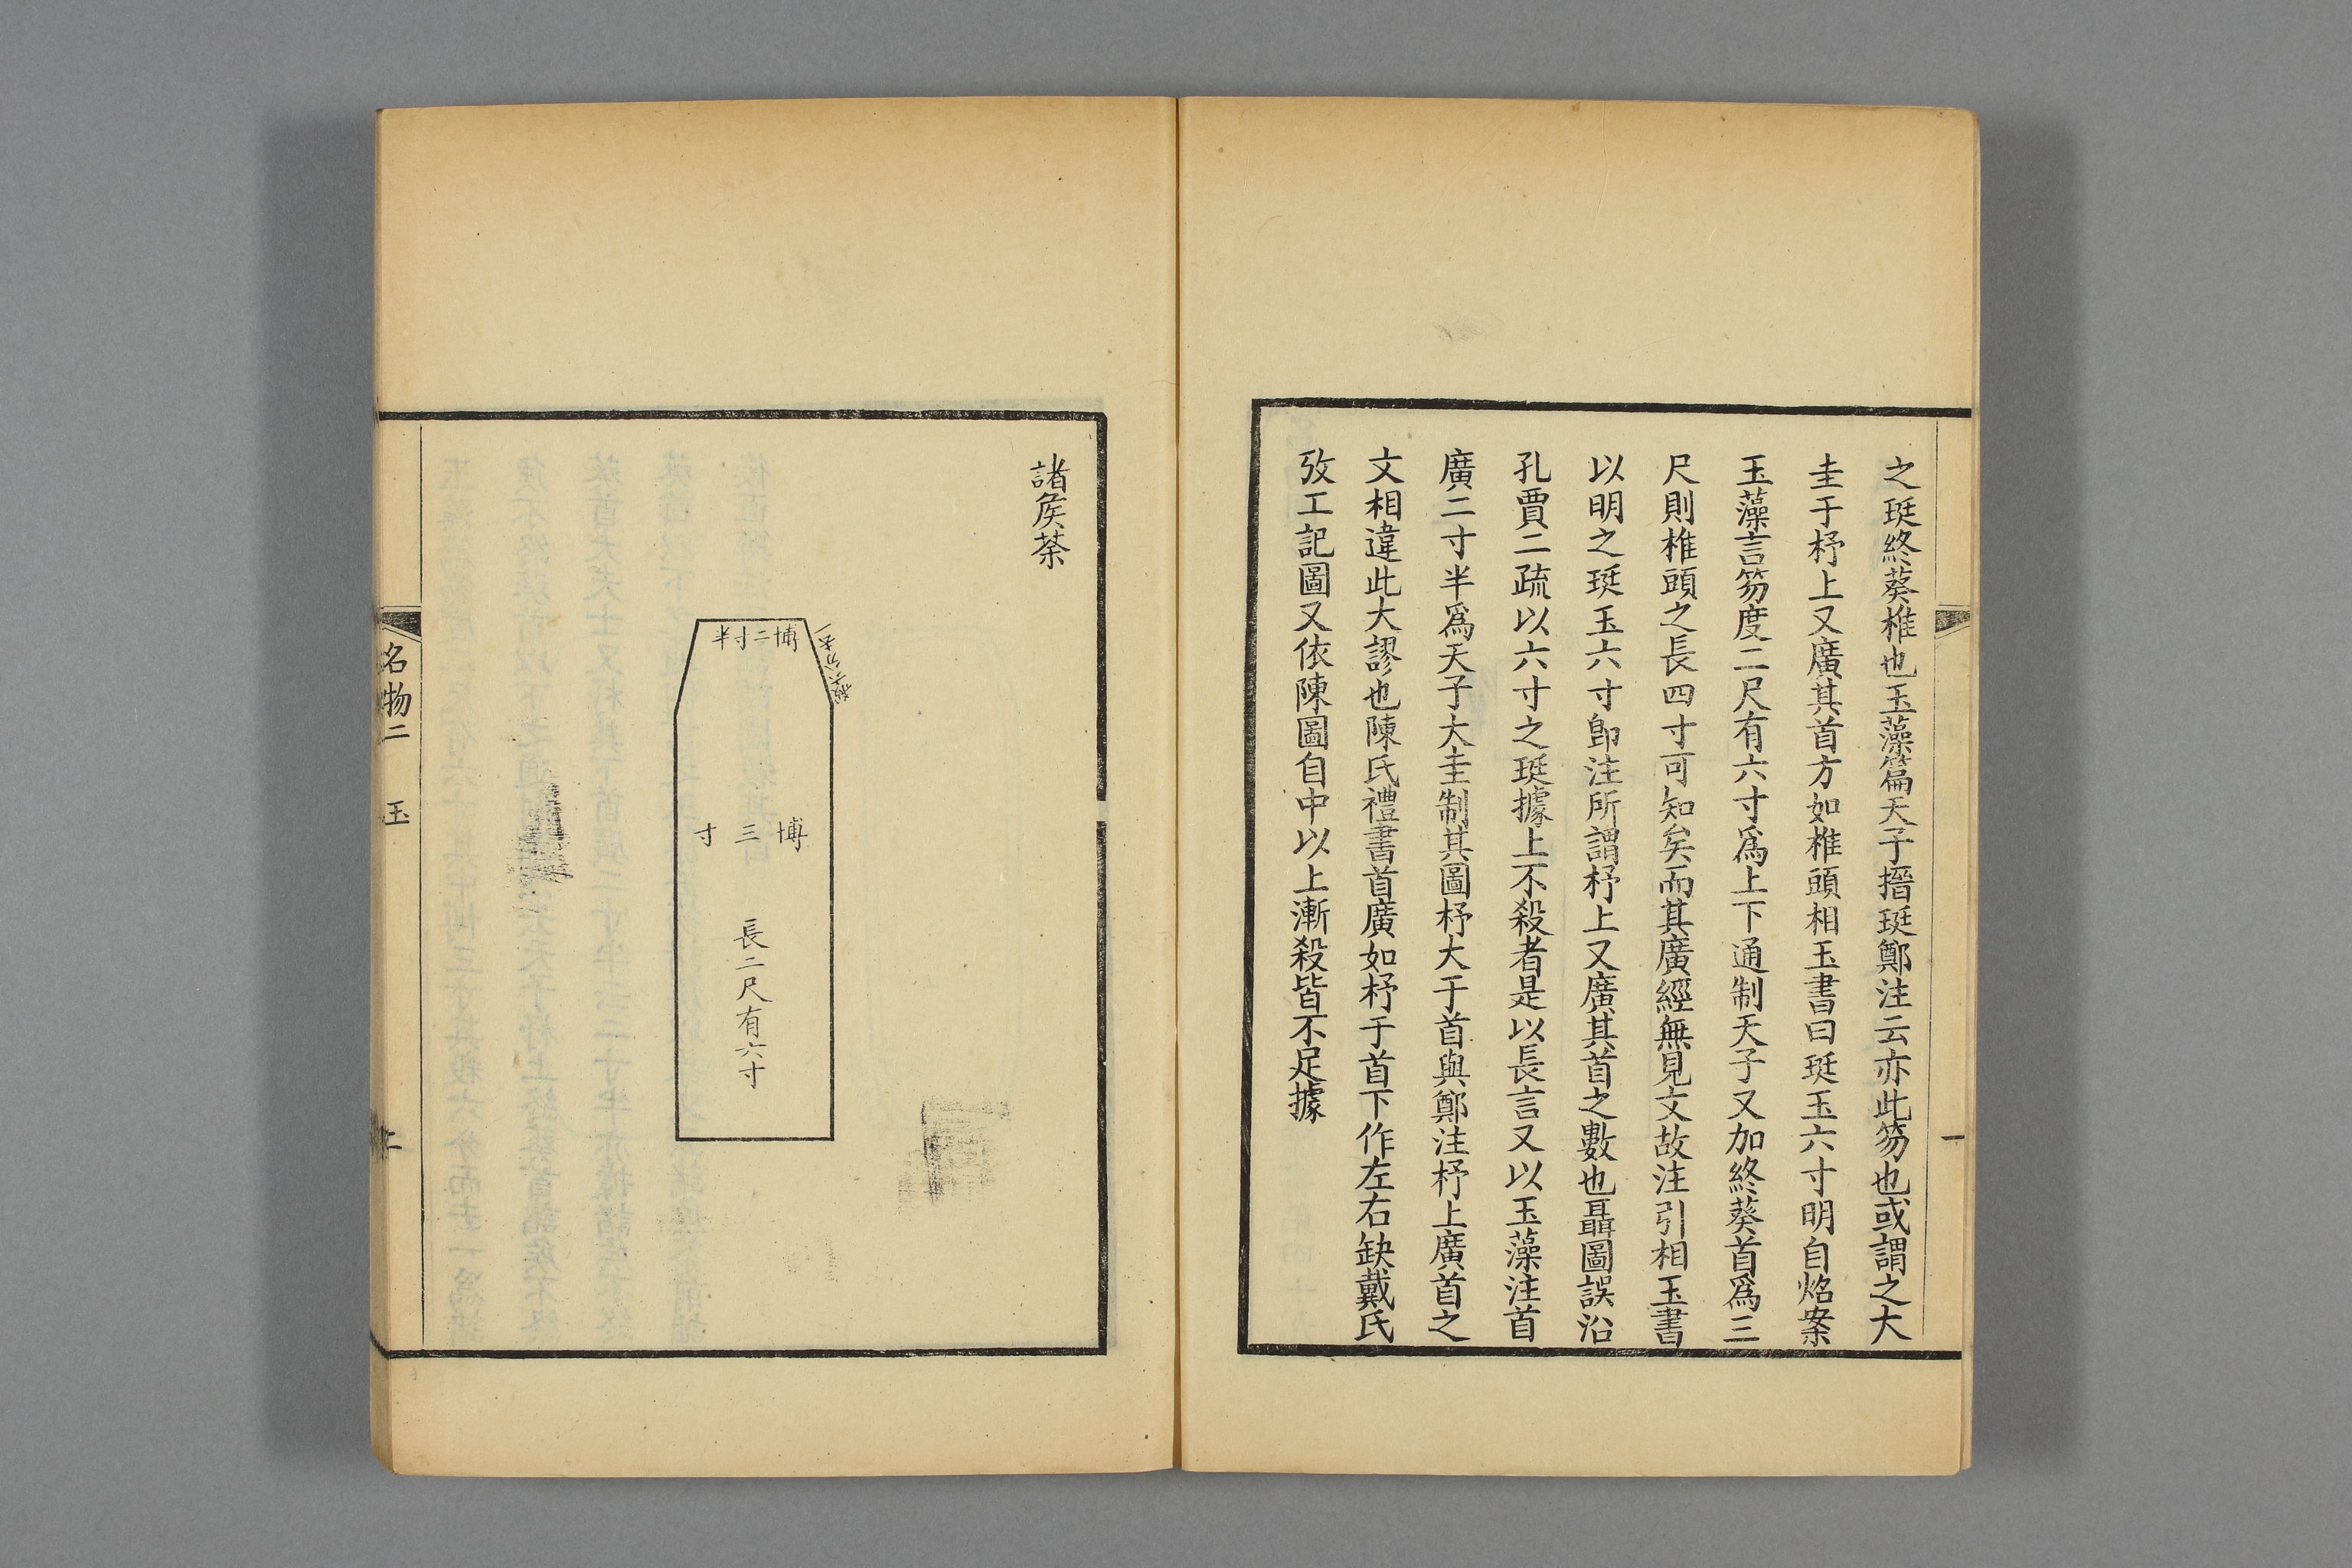 之珽終葵椎也玉藻篇天子搢珽鄭注云亦此笏也或謂之大
圭于杼上又廣其首方如椎頭相玉書曰珽玉六寸明自炤案
玉藻言笏度二尺有六寸爲上下通制天子又加終葵首爲三
尺則椎頭之長四寸可知矣而其廣經無見文故注引相玉書
以明之珽玉六寸卽注所謂杼上又廣其首之數也聶圖誤沿
孔賈二疏以六寸之珽據上不殺者是以長言又以玉藻注首
廣二寸半爲天子大圭制其圖杼大于首與鄭注杼上廣首之
文相違此大謬也陳氏禮書首廣如杼于首下作左右缺戴氏
攷工記圖又依陳圖自中以上漸殺皆不足據
一
諸矦荼
博二寸半
殺六分去一
博三寸
長二尺有六寸
名物二 玉
二